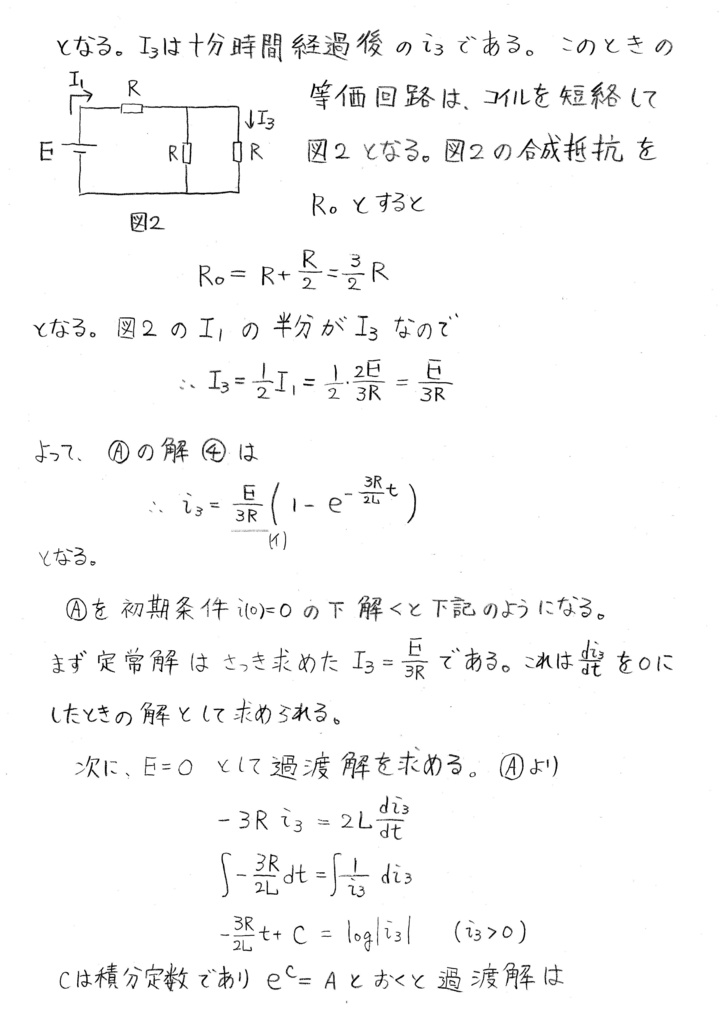 となる。I₃は十分時間経過後のi₃である。このときの
I₁
R
等価回路は、コイルを短絡して
↓I₃
E
R
R
図2となる。図2の合成抵抗を
図2
R₀とすると
R₀ = R + R/2 = 3/2 R
となる。図2のI₁の半分がI₃なので
∴ I₃ = 1/2 I₁ = 1/2 · 2E/3R = E/3R
よって、Ⓐの解④は
∴ i₃ = E/3R (1 - e^{-3R/2L t})
(イ)
となる。
Ⓐを初期条件i(0)=0の下解くと下記のようになる。
まず定常解はさっき求めたI₃ = E/3Rである。これはdi₃/dtを0に
したときの解として求められる。
次に、E=0として過渡解を求める。Ⓐより
-3R i₃ = 2L di₃/dt
∫ -3R/2L dt = ∫ 1/i₃ di₃
-3R/2L t + C = log|i₃| (i₃>0)
Cは積分定数でありe^C = Aとおくと過渡解は